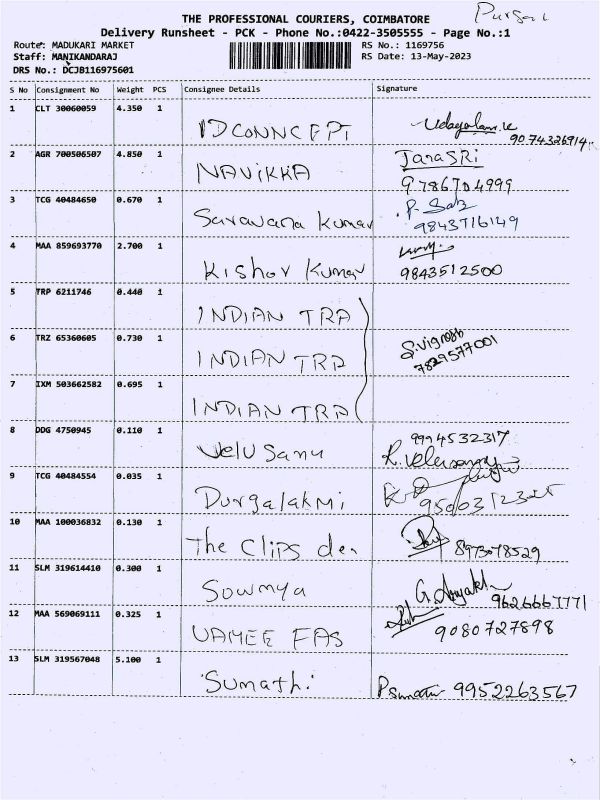 THE PROFESSIONAL COURIERS, COIMBATORE
Delivery Runsheet - PCK - Phone No.:0422-3505555 - Page No.:1
Route: MADUKARI MARKET RS No.: 1169756
Staff: MANIKANDARAJ RS Date: 13-May-2023
DRS No.: DCJB116975601
S No Consignment No Weight PCS Consignee Details Signature
1 CLT 30060059 4.350 1 IDCONNCEPT
9074326914
2 AGR 700506507 4.850 1 NAVIKKA JanaSRi
9786704999
3 TCG 40484650 0.670 1 Saravana Kumar
9843716149
4 MAA 859693770 2.700 1 Kishor Kumar
9843512500
5 TRP 6211746 0.440 1 INDIAN TRA
6 TRZ 65360605 0.730 1 INDIAN TRA
7829577001
7 IXM 503662582 0.695 1 INDIAN TRA
8 DDG 4750945 0.110 1 Velu Samu 9994532317
9 TCG 40484554 0.035 1 Durgalakmi
10 MAA 100036832 0.130 1 The Clips den 8973078529
11 SLM 319614410 0.300 1 Sowmya
9626667771
12 MAA 569069111 0.325 1 VAMEE FAS 9080727898
13 SLM 319567048 5.100 1 Sumathi 9952263567